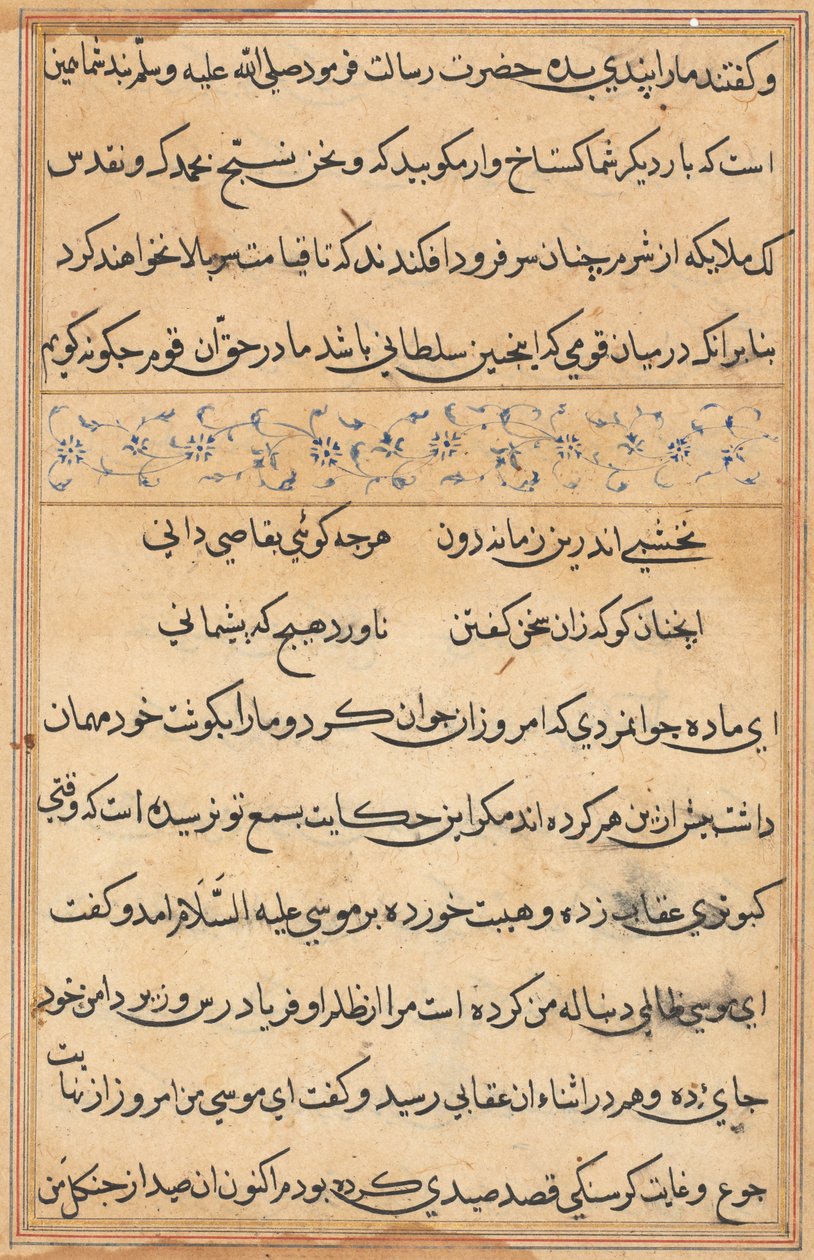 و کفتند مارا پندي بده حضرت رسالت فرمود صلی الله علیه وسلّم پند شما همین
است که بار دیکر شما کستاخ وار مکویید که و نحن نسبّح بحمدک و نقدس
لک ملایکه از شرم چنان سر فرود افکندند که تا قیامت سر بالا نخواهند کرد
بنا بر انکه در میان قومي که اینچنین سلطاني باشد ما در حقّ آن قوم جکونه کویم
نَخشبي اندرین زمانه دون هرجه کوئي بقاصي داني
انچنان کو که زان سخن کفتن ناورد هیج که پشیماني
اي ماده جوانمردي که امروز ان جوان کرد و مارا بکوشت خود مهمان
داشت پیش ازین هم کرده اند مکر این حکایت بسمع تو نرسیده است که وقتي
کبوتري عقاب زده و هیبت خورده بر موسي علیه السَّلَام امد و کفت
اي موسي ظالمي دنباله من کرده است مرا از ظلم او فریاد رس و زیر دامن خود
جائ ده و هم در اثناء ان عقابي رسید و کفت اي موسي من امروز از نهایت
جوع و غایت کرسنکي قصد صیدي کرده بودم اکنون ان صید از جنکل من